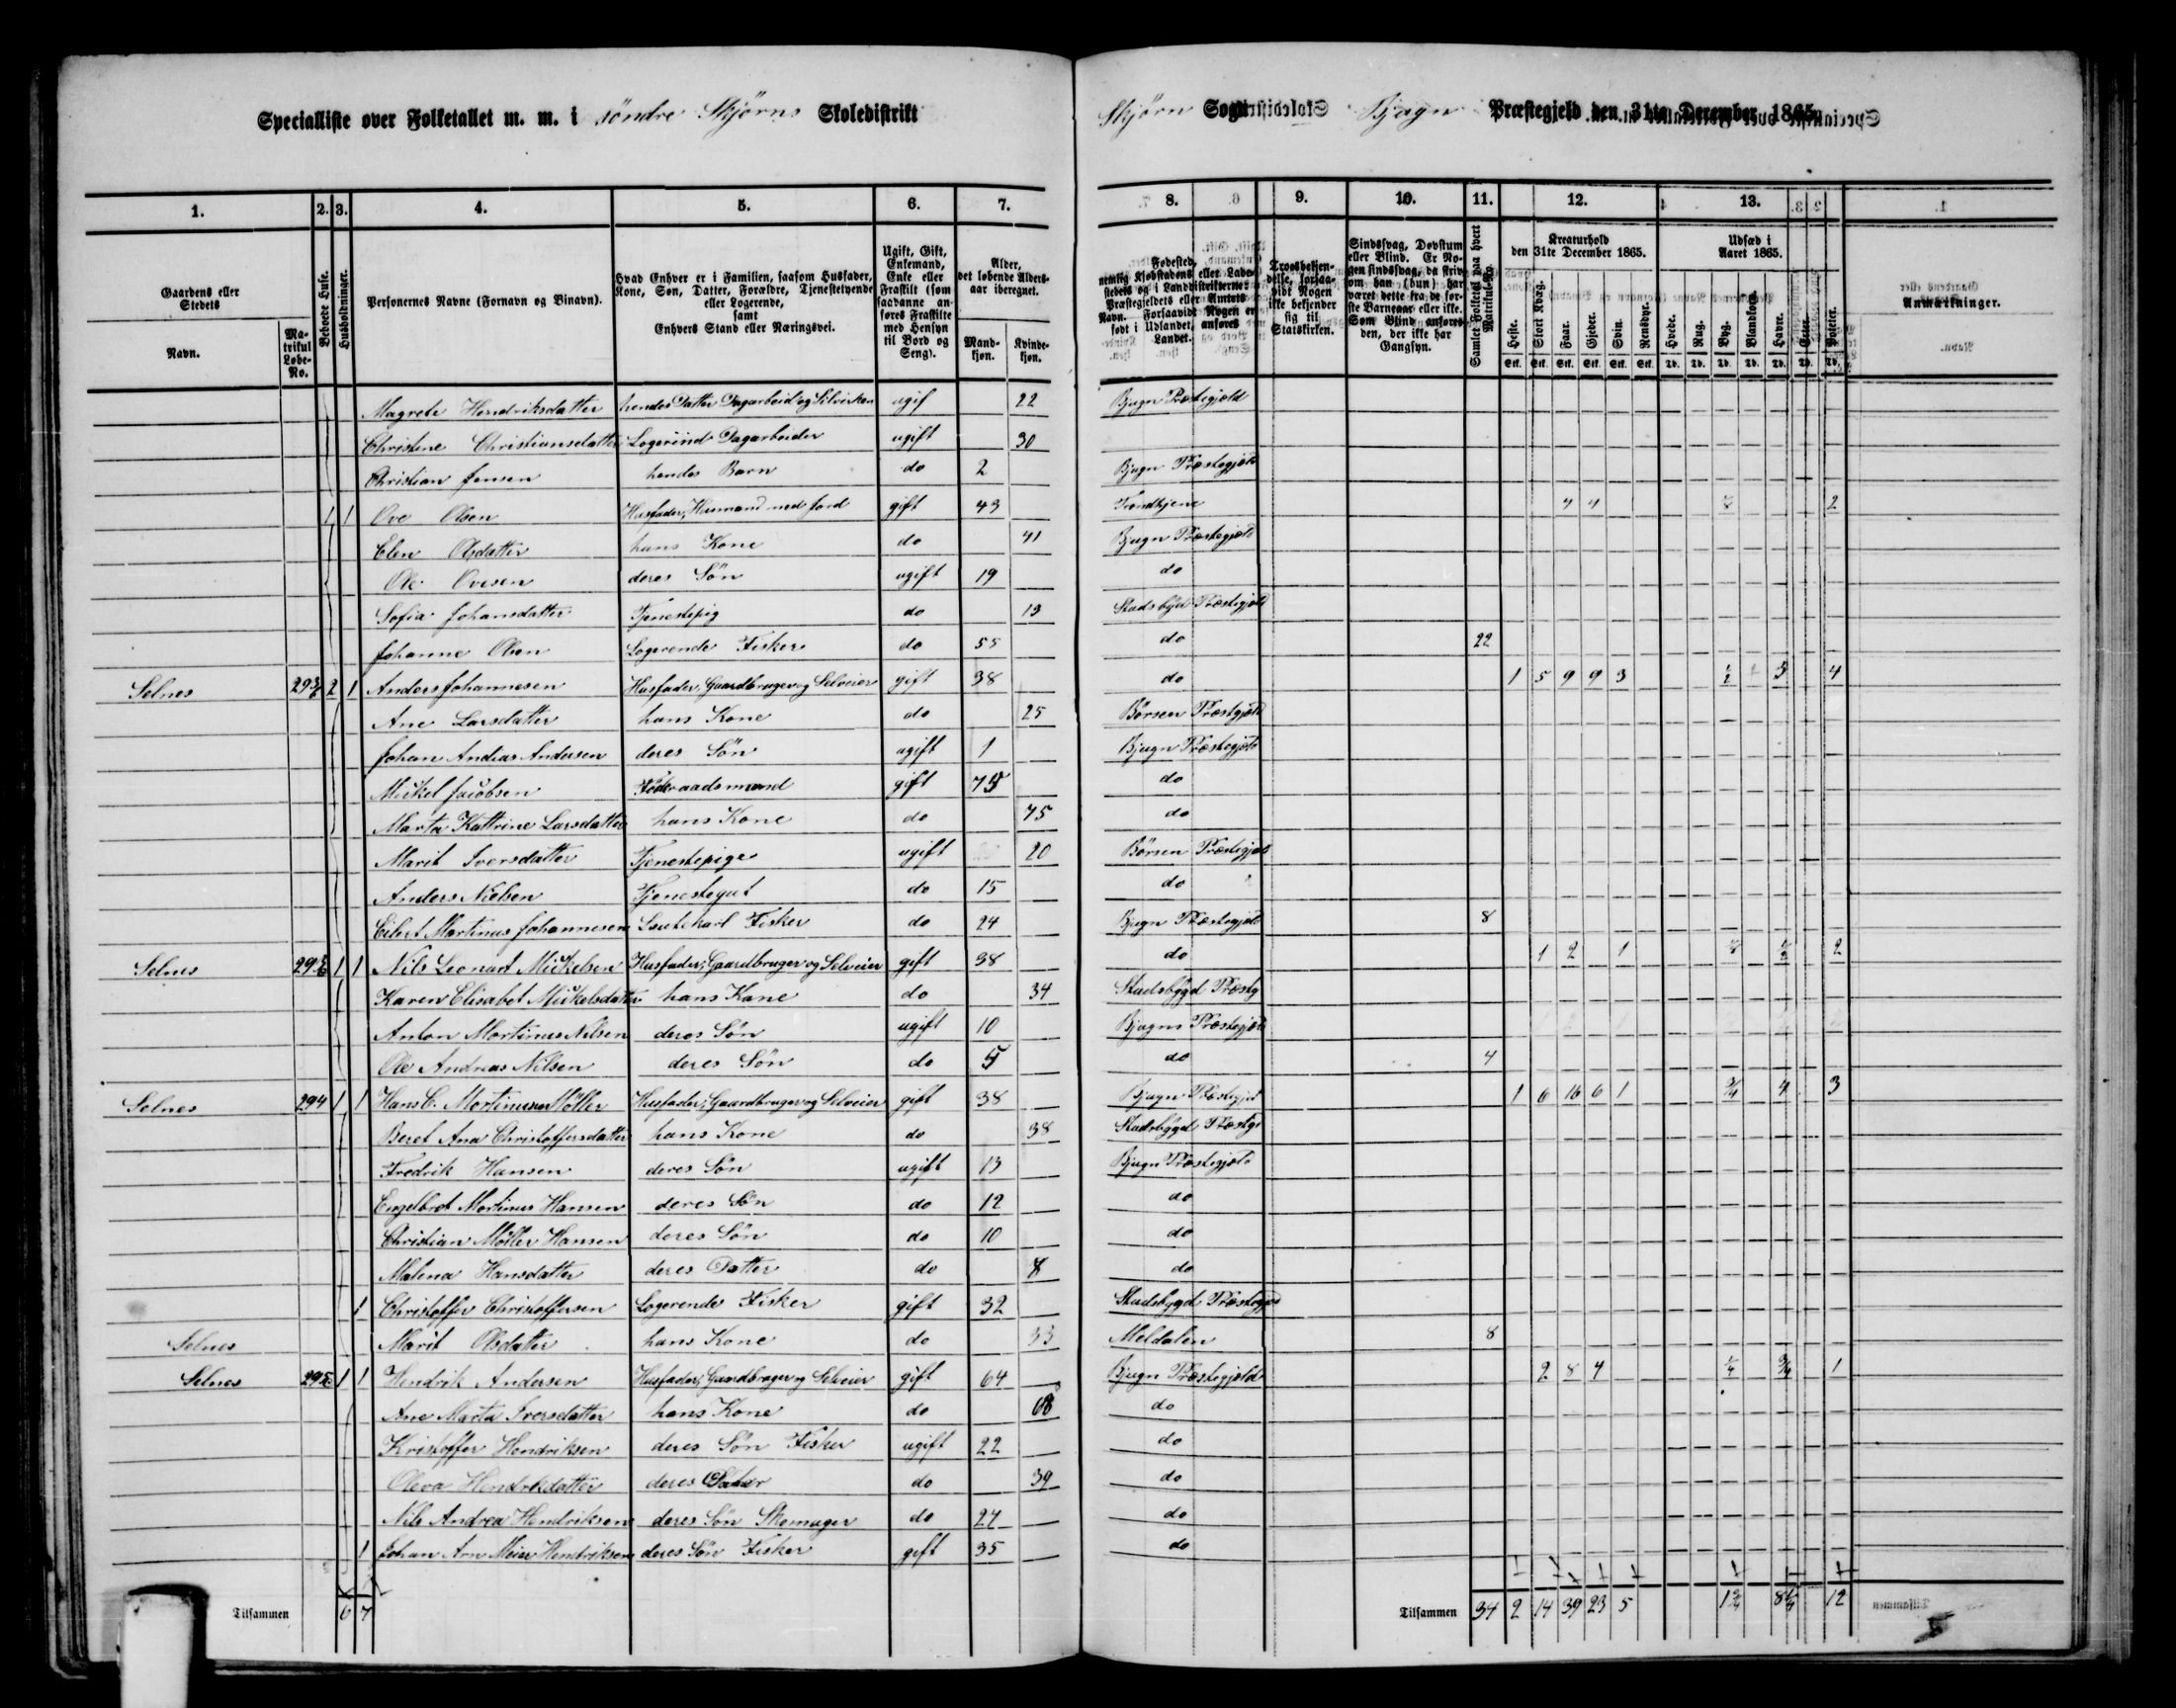 Specialliste over Folketallet m. m. i söndre Skjörns Skoledistrikt
Skjörn Sogn Bjugn Præstegjeld den 31te December 1865.
1. 2. 3. 4. 5. 6. 7. 8. 9. 10. 11. 12. 13.
Gaardens eller Stedets
Navn.
Matrikul Løbe-No.
Beboede Huse.
Husholdninger.
Personernes Navne (Fornavn og Binavn).
Hvad Enhver er i Familien, saasom Husfader, Kone, Søn, Datter, Forældre, Tjenestetyende eller Logerende, samt Enhvers Stand eller Næringsvei.
Ugift, Gift, Enkemand, Enke eller Fraskilt (som saadanne anføres Fraskilte med Hensyn til Bord og Seng).
Alder, det løbende Alders-aar iberegnet.
Mand-kjøn.
Kvinde-kjøn.
Fødested, nemlig Kjøbstadens eller Lade-stedets og i Landdistrikterne Præstegjeldets eller Amtets Navn. Forsaavidt Nogen er født i Udlandet, anføres Landet.
Troesbekjen-delse, forsaa-vidt Nogen ikke bekjender sig til Statskirken.
Sindssvag, Døvstum eller Blind. Er No-gen sindssvag, da skriv om han (hun) har været dette fra de før-ste Barneaar eller ikke. Som Blind anføres den, der ikke har Gangsyn.
Samlet Folketal paa hvert Matrikul-No.
Kreaturhold den 31te December 1865.
Heste. Stort Kvæg. Faar. Gjeder. Svin. Rensdyr.
Udsæd i Aaret 1865.
Hvede. Rug. Byg. Blandkorn. Havre. Erter. Poteter.
Anmærkninger.
Magrete Hendriksdatter hendes Datter Dagarbeid og Silvirken ugif 22 Bjugn Præstegjæld
Christine Christiansdatter Logerind Dagarbeider ugift 30
Christian Jensen hendes Barn do 2 Bjugn Præstegjæld
1 1 Ove Olsen Husfader, Husmand med Jord gift 43 Trondhjem 2
Elen Olsdatter hans Kone do 41 Bjugn Præstegjæld
Ole Ovesen deres Sön ugift 19 do
Sofia Johansdatter Tjenestepig do 13 Stadsbygd Præstegjæld
Johanne Olsen Logerende Fisker do 55 do 22
Selnes 2 1 Anders Johannesen Husfader, Gaardbruger og Selveier gift 38 do 1 5 9 9 3 ½ 3 4
Ane Larsdatter hans Kone do 25 Börsen Præstgjæld
Johan Andreas Andersen deres Sön ugift 1 Bjugn Præstegjæld
Mickel Jacobsen Föderaadsmand gift 75 do
Marta Kattrine Larsdatter hans Kone do 75 do
Marit Iversdatter Tjenestepige ugift 20 Börsen Præstegjæld
Anders Nielsen Tjenestegut do 15 do
Eilert Martinus Johannesen Fisker do 24 Bjugn Præstegjæld 8
Selnes 1 1 Nils Leonart Mickelsen Husfader, Gaardbruger og Selveier gift 38 do 1 2 1 2
Karen Elisabet Mickelsdatter hans Kone do 34 Stadsbygd Præstg
Anton Martinus Nilsen deres Sön ugift 10 Bjugns Præstegjæld
Ole Andreas Nilsen deres Sön do 5 do 4
Selnes 294 1 1 Hans C. Martinusen Möller Husfader, Gaardbruger og Selveier gift 38 Bjugn Præstegjld 1 6 16 6 1 ¾ 4 3
Beret Ana Christoffersdatter hans Kone do 38 Stadsbygd Præstgj
Fredrik Hansen deres Sön ugift 13 Bjugn Præstegjæld
Engelbret Martinus Hansen deres Sön do 12 do
Christian Möller Hansen deres Sön do 10 do
Malena Hansdatter deres Datter do 8 do
1 Christoffer Christoffersen Logerende Fisker gift 32 Stadsbygd Præstegjæ
Selnes Marit Olsdatter hans Kone do 33 Meldalen 8
Selnes 295 1 1 Hendrik Andersen Husfader, Gaardbruger og Selveier gift 64 Bjugn Præstegjæld 2 8 4 ¼ ¾ 1
Ane Marta Iversdatter hans Kone do 68 do
Kristoffer Hendriksen deres Sön Fisker ugift 22 do
Oleva Hendriksdatter deres Datter do 39 do
Nils Andrea Hendriksen deres Sön Skomager do 27 do
1 Johan Arn Meier Hendriksen deres Sön Fisker gift 35 do
Tilsammen 6 7
Tilsammen 34 2 14 39 23 5 1¾ 8¼ 12